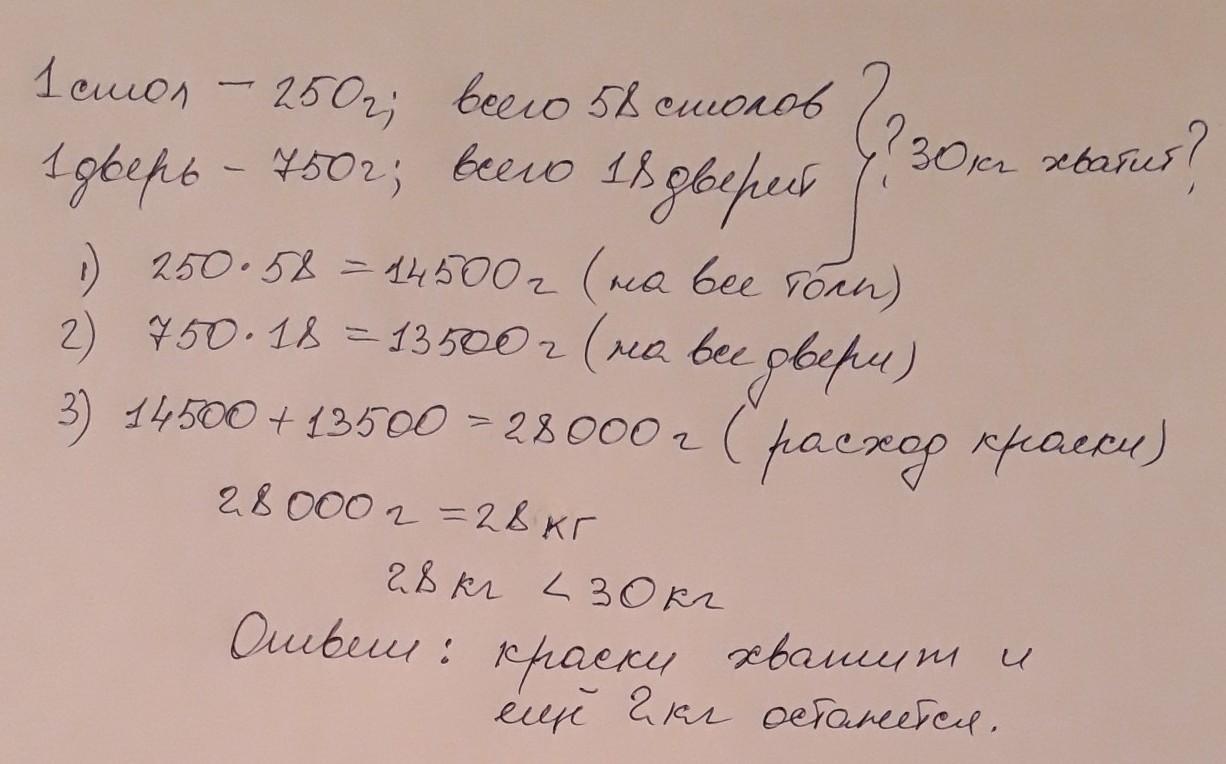 1 стол - 250г; всего 58 столов
1 дверь - 750г; всего 18 дверей
? 30кг хватит?
1) 250·58 = 14500г (на все толы)
2) 750·18 = 13500г (на все двери)
3) 14500 + 13500 = 28000г (расход краски)
28000г = 28кг
28кг < 30кг
Ответ: краски хватит и
ещё 2кг останется.